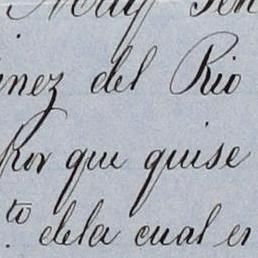 Muy Sen
inez del Rio
Por que quise
to dela cual en